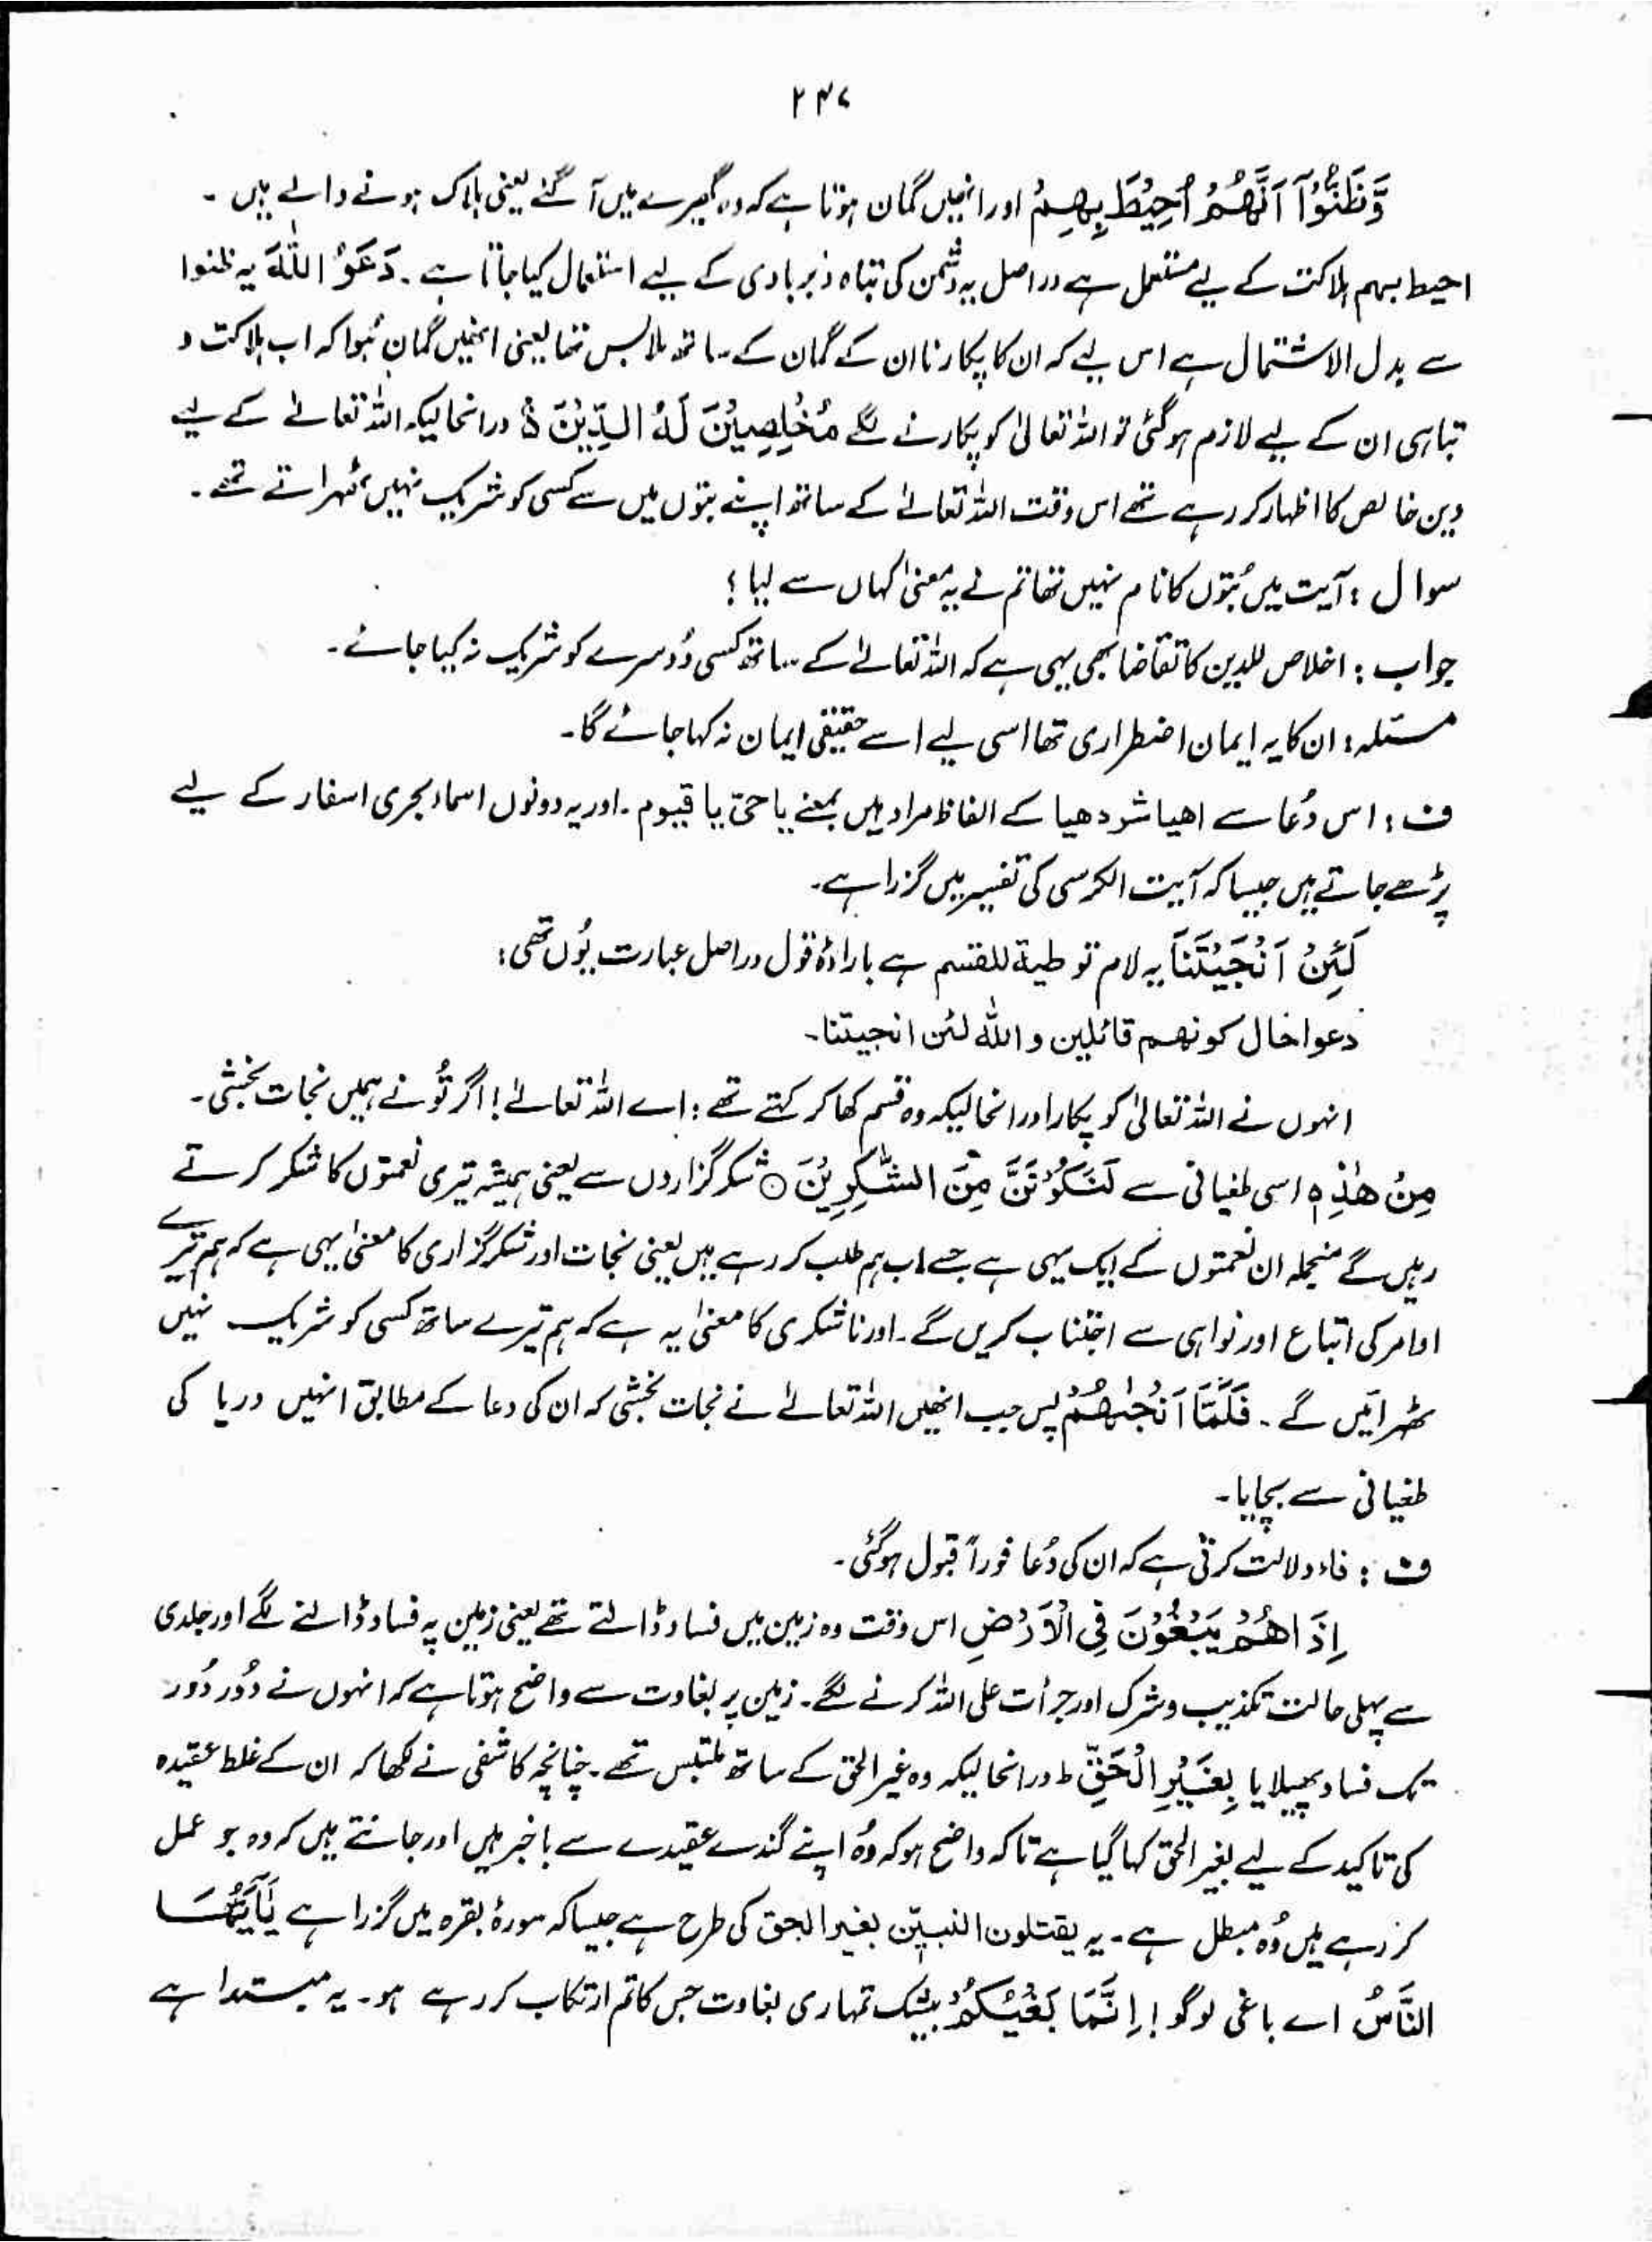 ۲۴۷
وَّظَنُّوْٓا اَنَّهُمْ اُحِیْطَ بِهِمْ اور انھیں گمان ہوتا ہے کہ وہ گھیرے میں آ گئے یعنی ہلاک ہونے والے ہیں ۔
احیط بہم ہلاکت کے لیے مستعمل ہے دراصل یہ دُشمن کی تباہ و بربادی کے لیے استعمال کیا جاتا ہے ۔ دَعَوُا اللّٰهَ یہ ظنوا
سے بدل الاشتمال ہے اس لیے کہ ان کا پکارنا ان کے گمان کے ساتھ ملابس تھا یعنی انھیں گمان ہُوا کہ اب ہلاکت و
تباہی ان کے لیے لازم ہو گئی تو اللہ تعالیٰ کو پکارنے لگے مُخْلِصِیْنَ لَهُ الدِّیْنَ ۚ درانحالیکہ اللہ تعالےٰ کے لیے
دین خالص کا اظہار کر رہے تھے اس وقت اللہ تعالےٰ کے ساتھ اپنے بتوں میں سے کسی کو شریک نہیں ٹھہراتے تھے ۔
سوال : آیت میں بُتوں کا نام نہیں تھا تم نے یہ معنیٰ کہاں سے لیا ؟
جواب : اخلاص للدین کا تقاضا بھی یہی ہے کہ اللہ تعالےٰ کے ساتھ کسی دُوسرے کو شریک نہ کیا جائے ۔
مسئلہ : ان کا یہ ایمان اضطراری تھا اسی لیے اسے حقیقی ایمان نہ کہا جائے گا ۔
ف : اس دُعا سے اھیا شردھیا کے الفاظ مراد ہیں بمعنے یا حیّ یا قیوم ۔ اور یہ دونوں اسماء بحری اسفار کے لیے
پڑھے جاتے ہیں جیسا کہ آیت الکرسی کی تفسیر میں گزرا ہے ۔
لَئِنْ اَنْجَیْتَنَا یہ لام توطیۃ للقسم ہے بارادۂ قول دراصل عبارت یُوں تھی :
دعوا خال کونھم قائلین واللہ لئن انجیتنا ۔
انہوں نے اللہ تعالیٰ کو پکارا درانحالیکہ وہ قسم کھا کر کہتے تھے : اے اللہ تعالےٰ ! اگر تُو نے ہمیں نجات بخشی ۔
مِنْ هٰذِهٖ اسی طغیانی سے لَنَكُوْنَنَّ مِنَ الشّٰكِرِیْنَ ○ شکر گزاروں سے یعنی ہمیشہ تیری نعمتوں کا شکر کرتے
رہیں گے منجملہ ان نعمتوں کے ایک یہی ہے جسے اب ہم طلب کر رہے ہیں یعنی نجات اور شکر گزاری کا معنیٰ یہی ہے کہ ہم تیرے
اوامر کی اتباع اور نواہی سے اجتناب کریں گے ۔ اور ناشکری کا معنیٰ یہ ہے کہ ہم تیرے ساتھ کسی کو شریک نہیں
ٹھہرائیں گے ۔ فَلَمَّآ اَنْجٰىهُمْ پس جب انھیں اللہ تعالےٰ نے نجات بخشی کہ ان کی دعا کے مطابق انہیں دریا کی
طغیانی سے بچایا ۔
ف : فاء دلالت کرتی ہے کہ ان کی دُعا فوراً قبول ہو گئی ۔
اِذَا هُمْ یَبْغُوْنَ فِی الْاَرْضِ اس وقت وہ زمین میں فساد ڈالتے تھے یعنی زمین پہ فساد ڈالنے لگے اور جلدی
سے پہلی حالت تکذیب و شرک اور جرأت علی اللہ کرنے لگے ۔ زمین پر بغاوت سے واضح ہوتا ہے کہ انہوں نے دُور دُور
تک فساد پھیلایا بِغَیْرِ الْحَقِّ ط درانحالیکہ وہ غیر الحق کے ساتھ ملتبس تھے ۔ چنانچہ کاشفی نے لکھا کہ ان کے غلط عقیدہ
کی تاکید کے لیے بغیر الحق کہا گیا ہے تاکہ واضح ہو کہ وُہ اپنے گندے عقیدے سے باخبر ہیں اور جانتے ہیں کہ وہ جو عمل
کر رہے ہیں وُہ مبطل ہے ۔ یہ یقتلون النبیّن بغیر الحق کی طرح ہے جیسا کہ سورۂ بقرہ میں گزرا ہے یٰٓاَیُّهَا
النَّاسُ اے باغی لوگو ! اِنَّمَا بَغْیُكُمْ بیشک تمہاری بغاوت جس کا تم ارتکاب کر رہے ہو ۔ یہ مبتدا ہے